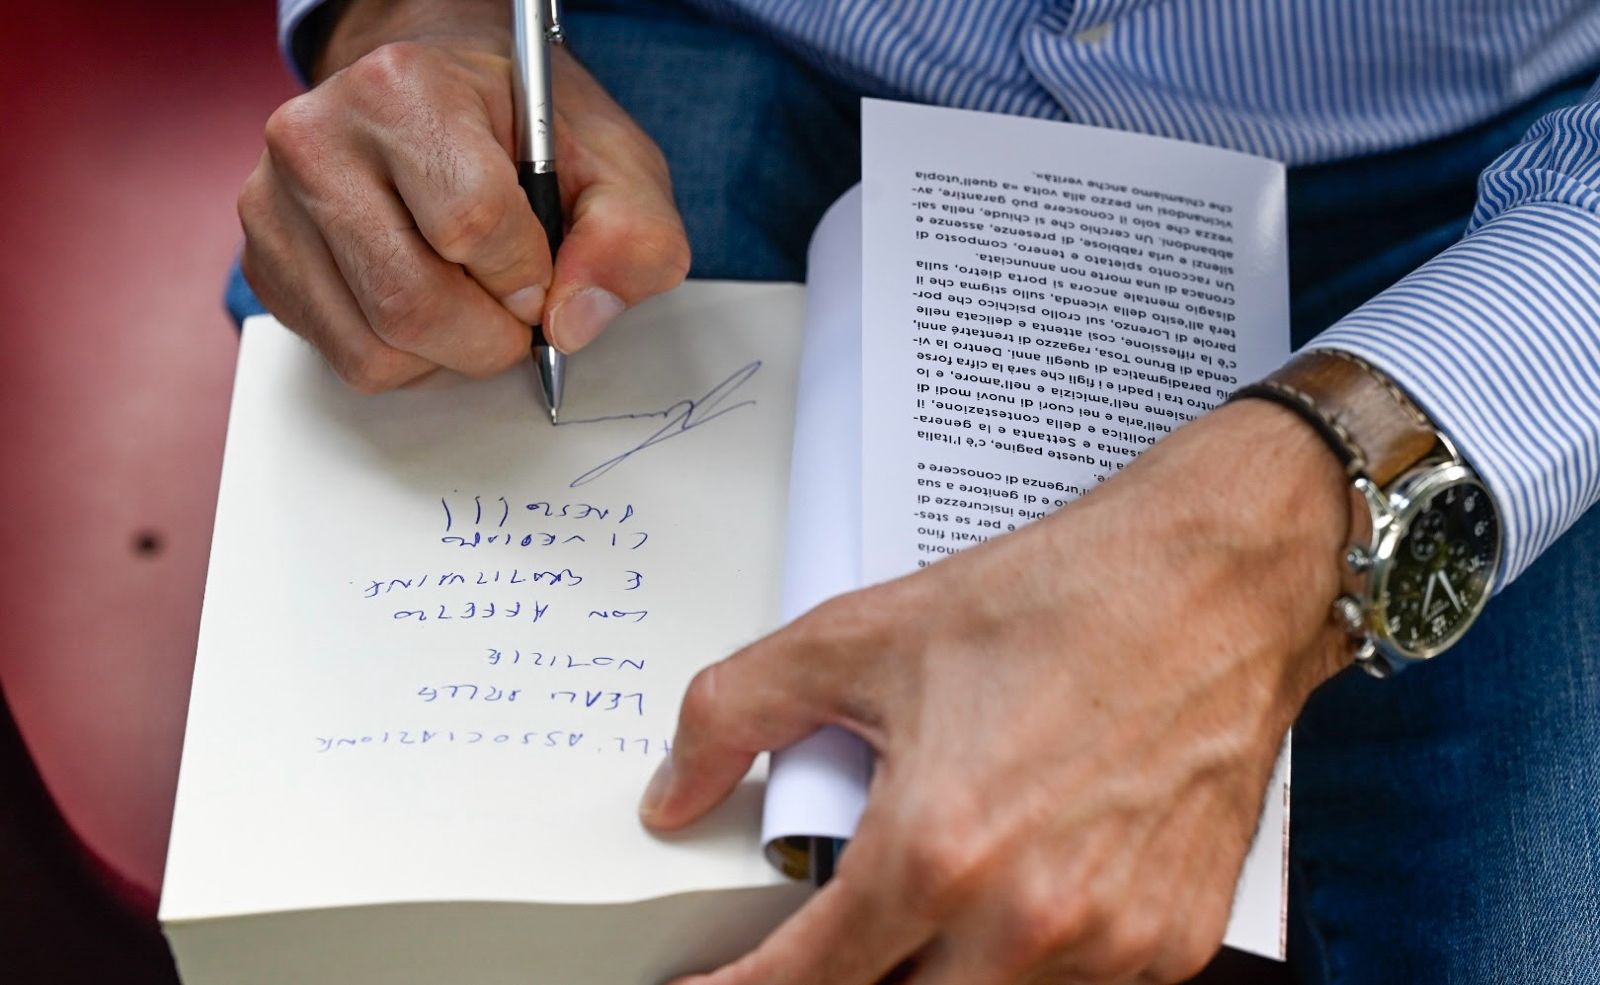 ALL'ASSOCIAZIONE
LEALI DELLE
NOTIZIE
CON AFFETTO
E GRATITUDINE.
CI VEDIAMO
PRESTO!!!
e per se stes-
insicurezze di
e di genitore a sua
urgenza di conoscere
in queste pagine, c'è l'Italia
e Settanta e la genera-
politica e della contestazione, il
nell'aria e nei cuori di nuovi modi di
insieme nell'amicizia e nell'amore, e lo
tra i padri e i figli che sarà la cifra forse
più paradigmatica di quegli anni. Dentro la vi-
cenda di Bruno Tosa, ragazzo di trentatré anni,
c'è la riflessione, così attenta e delicata nelle
parole di Lorenzo, sul crollo psichico che por-
terà all'esito della vicenda, sullo stigma che il
disagio mentale ancora si porta dietro, sulla
cronaca di una morte non annunciata.
Un racconto spietato e tenero, composto di
silenzi e urla rabbiose, di presenze, assenze e
abbandoni. Un cerchio che si chiude, nella sal-
vezza che solo il conoscere può garantire, av-
vicinandosi un pezzo alla volta «a quell'utopia
che chiamiamo anche verità».